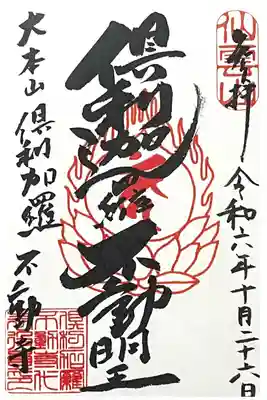 奉拝
令和六年十月二十六日
倶利迦羅不動明王
大本山倶利加羅不動寺